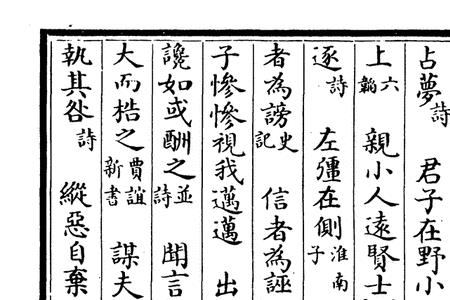 占夢詩 君子在野小
上六韜 親小人遠賢士
逐詩 左彊在側淮南子
者為謗史記 信者為誣
子慘慘視我邁邁 出
讒如或酬之並詩 聞言
大而梏之賈誼新書 謀夫
執其咎詩 縱惡自棄